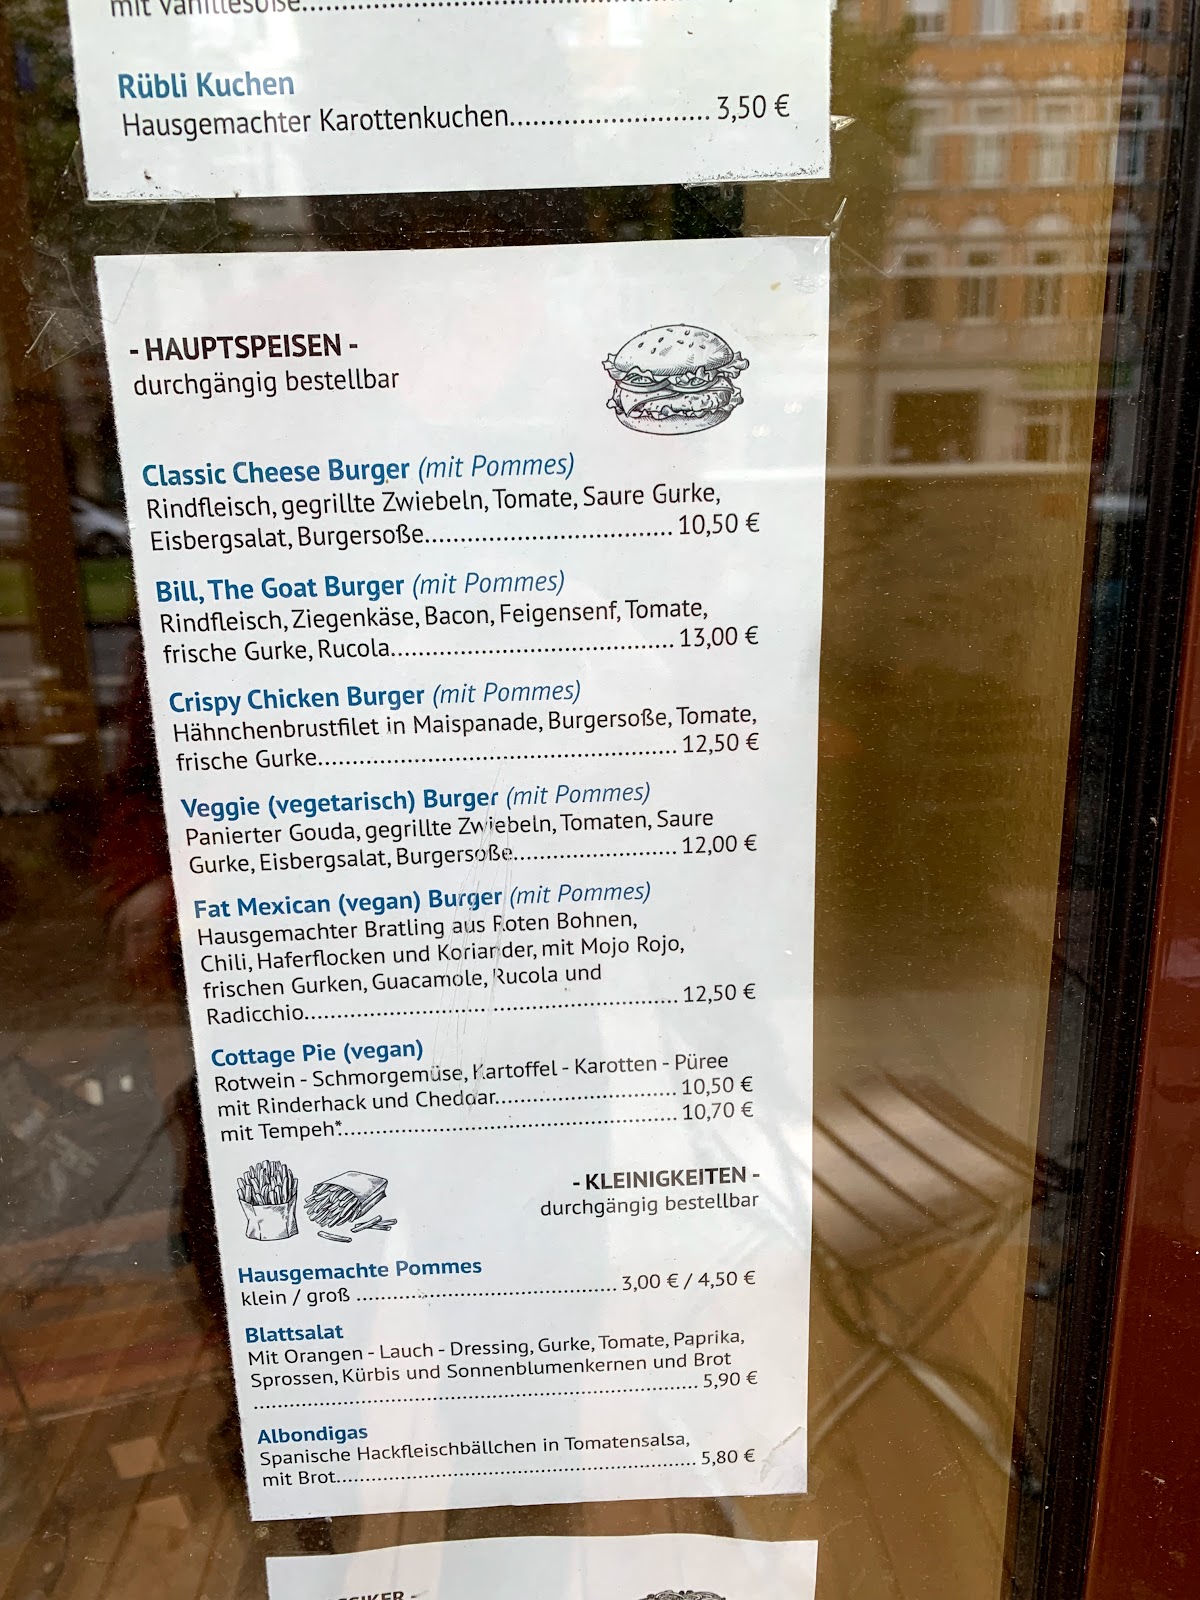 mit Vanillesoße...............................................
Rübli Kuchen
Hausgemachter Karottenkuchen.......................... 3,50 €
- HAUPTSPEISEN -
durchgängig bestellbar
Classic Cheese Burger (mit Pommes)
Rindfleisch, gegrillte Zwiebeln, Tomate, Saure Gurke,
Eisbergsalat, Burgersoße................................... 10,50 €
Bill, The Goat Burger (mit Pommes)
Rindfleisch, Ziegenkäse, Bacon, Feigensenf, Tomate,
frische Gurke, Rucola......................................... 13,00 €
Crispy Chicken Burger (mit Pommes)
Hähnchenbrustfilet in Maispanade, Burgersoße, Tomate,
frische Gurke..................................................... 12,50 €
Veggie (vegetarisch) Burger (mit Pommes)
Panierter Gouda, gegrillte Zwiebeln, Tomaten, Saure
Gurke, Eisbergsalat, Burgersoße........................ 12,00 €
Fat Mexican (vegan) Burger (mit Pommes)
Hausgemachter Bratling aus Roten Bohnen,
Chili, Haferflocken und Koriander, mit Mojo Rojo,
frischen Gurken, Guacamole, Rucola und
Radicchio....................................................... 12,50 €
Cottage Pie (vegan)
Rotwein - Schmorgemüse, Kartoffel - Karotten - Püree
mit Rinderhack und Cheddar............................ 10,50 €
mit Tempeh*.................................................... 10,70 €
- KLEINIGKEITEN -
durchgängig bestellbar
Hausgemachte Pommes
klein / groß ........................................... 3,00 € / 4,50 €
Blattsalat
Mit Orangen - Lauch - Dressing, Gurke, Tomate, Paprika,
Sprossen, Kürbis und Sonnenblumenkernen und Brot
......................................................................... 5,90 €
Albondigas
Spanische Hackfleischbällchen in Tomatensalsa,
mit Brot............................................................ 5,80 €